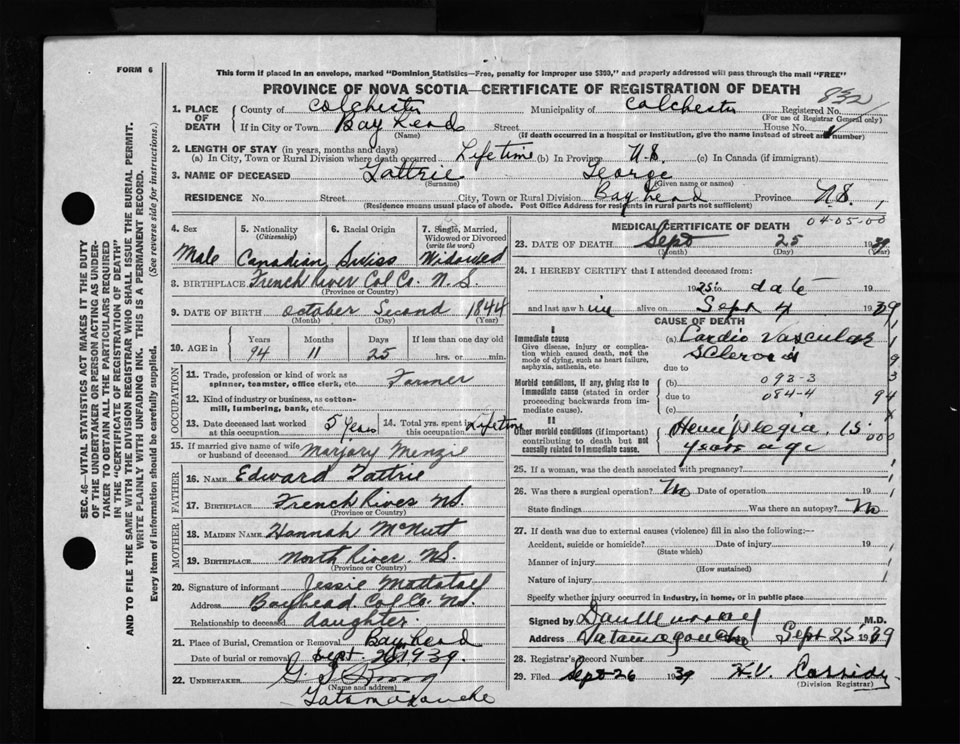 FORM 6
This form if placed in an envelope, marked "Dominion Statistics—Free, penalty for improper use $300," and properly addressed will pass through the mail "FREE"
PROVINCE OF NOVA SCOTIA—CERTIFICATE OF REGISTRATION OF DEATH
832
1. PLACE OF DEATH County of Colchester Municipality of Colchester Registered No.
(For use of Registrar General only)
If in City or Town Bay Head Street House No.
(Name) (If death occurred in a hospital or institution, give the name instead of street and number)
2. LENGTH OF STAY (in years, months and days)
(a) In City, Town or Rural Division where death occurred Lifetime (b) In Province N.S. (c) In Canada (if immigrant)
3. NAME OF DECEASED Tattrie George
(Surname) (Given name or names)
RESIDENCE No. Street City, Town or Rural Division Bay head Province N.S.
(Residence means usual place of abode. Post Office Address for residents in rural parts not sufficient)
SEC. 46—VITAL STATISTICS ACT MAKES IT THE DUTY
OF THE UNDERTAKER OR PERSON ACTING AS UNDER-
TAKER TO OBTAIN ALL THE PARTICULARS REQUIRED
IN THE "CERTIFICATE OF REGISTRATION OF DEATH"
AND TO FILE THE SAME WITH THE DIVISION REGISTRAR WHO SHALL ISSUE THE BURIAL PERMIT.
WRITE PLAINLY WITH UNFADING INK. THIS IS A PERMANENT RECORD.
Every item of information should be carefully supplied. (See reverse side for instructions.)
4. Sex 5. Nationality 6. Racial Origin 7. Single, Married,
(Citizenship) Widowed or Divorced
(write the word)
Male Canadian Swiss Widowed
8. BIRTHPLACE French River Col Co. N.S.
(Province or Country)
9. DATE OF BIRTH October Second 1844
(Month) (Day) (Year)
10. AGE in Years Months Days If less than one day old
94 11 25 hrs. or min.
OCCUPATION
11. Trade, profession or kind of work as
spinner, teamster, office clerk, etc. Farmer
12. Kind of industry or business, as cotton-
mill, lumbering, bank, etc.
13. Date deceased last worked at this occupation 5 Years 14. Total yrs. spent in this occupation Lifetime
15. If married give name of wife
or husband of deceased Marjory Menzie
FATHER
16. NAME Edward Tattrie
17. BIRTHPLACE French River NS.
(Province or Country)
MOTHER
18. MAIDEN NAME Hannah McNutt
19. BIRTHPLACE North River. NS.
(Province or Country)
20. Signature of informant Jessie Mattatall
Address Bayhead Col Co. NS.
Relationship to deceased daughter
21. Place of Burial, Cremation or Removal Bay head
Date of burial or removal Sept. 1939.
22. UNDERTAKER
(Name and address)
Tatamagouche
MEDICAL CERTIFICATE OF DEATH 04-05-00
23. DATE OF DEATH Sept 25 1939
(Month) (Day)
24. I HEREBY CERTIFY that I attended deceased from:
1925 to date 19
and last saw him alive on Sept 4 1939
CAUSE OF DEATH
I
Immediate cause (a) Cardio Vascular
Give disease, injury or complica-
tion which caused death, not the
mode of dying, such as heart failure,
asphyxia, asthenia, etc.
Sclerosis
due to
Morbid conditions, if any, giving rise to
immediate cause (stated in order
proceeding backwards from im-
mediate cause).
(b) 093-3
due to 084-4 94
(c)
II
Other morbid conditions (if important)
contributing to death but not
causally related to immediate cause.
Hemiplegia 15
years ago
000
25. If a woman, was the death associated with pregnancy?
26. Was there a surgical operation? No Date of operation 19
State findings Was there an autopsy? No
27. If death was due to external causes (violence) fill in also the following:—
Accident, suicide or homicide? Date of injury 19
(State which)
Manner of injury
(How sustained)
Nature of injury
Specify whether injury occurred in industry, in home, or in public place
Signed by Dan Murray M.D.
Address Tatamagouche Sept 25 1939
28. Registrar's Record Number
29. Filed Sept 26 1939 Cassidy
(Division Registrar)